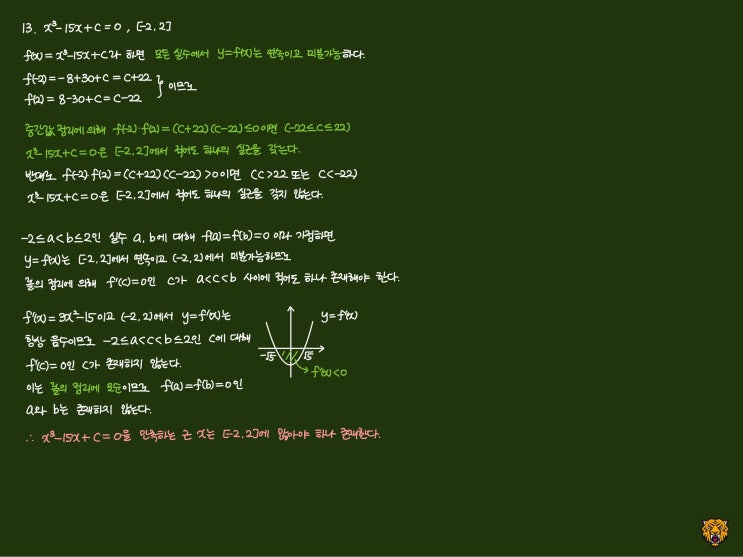 13. x³-15x+C=0, [-2,2]
f(x)=x³-15x+C라 하면 모든 실수에서 y=f(x)는 연속이고 미분가능하다.
f(-2)=-8+30+C=C+22
f(2)=8-30+C=C-22
이므로
중간값 정리에 의해 f(-2)·f(2)=(C+22)(C-22)≤0이면 (-22≤C≤22)
x³-15x+C=0은 [-2,2]에서 적어도 하나의 실근을 갖는다.
반대로 f(-2)·f(2)=(C+22)(C-22)>0이면 (C>22 또는 C<-22)
x³-15x+C=0은 [-2,2]에서 적어도 하나의 실근을 갖지 않는다.
-2≤a<b≤2인 실수 a, b에 대해 f(a)=f(b)=0이라 가정하면
y=f(x)는 [-2,2]에서 연속이고 (-2,2)에서 미분가능하므로
롤의 정리에 의해 f'(c)=0인 c가 a<c<b 사이에 적어도 하나 존재해야 한다.
f'(x)=3x²-15이고 (-2,2)에서 y=f'(x)는
항상 음수이므로 -2≤a<c<b≤2인 c에 대해
f'(c)=0인 c가 존재하지 않는다.
이는 롤의 정리에 모순이므로 f(a)=f(b)=0인
a와 b는 존재하지 않는다.
y=f'(x)
-√5 √5
f'(x)<0
∴ x³-15x+C=0을 만족하는 근 x는 [-2,2]에 많아야 하나 존재한다.